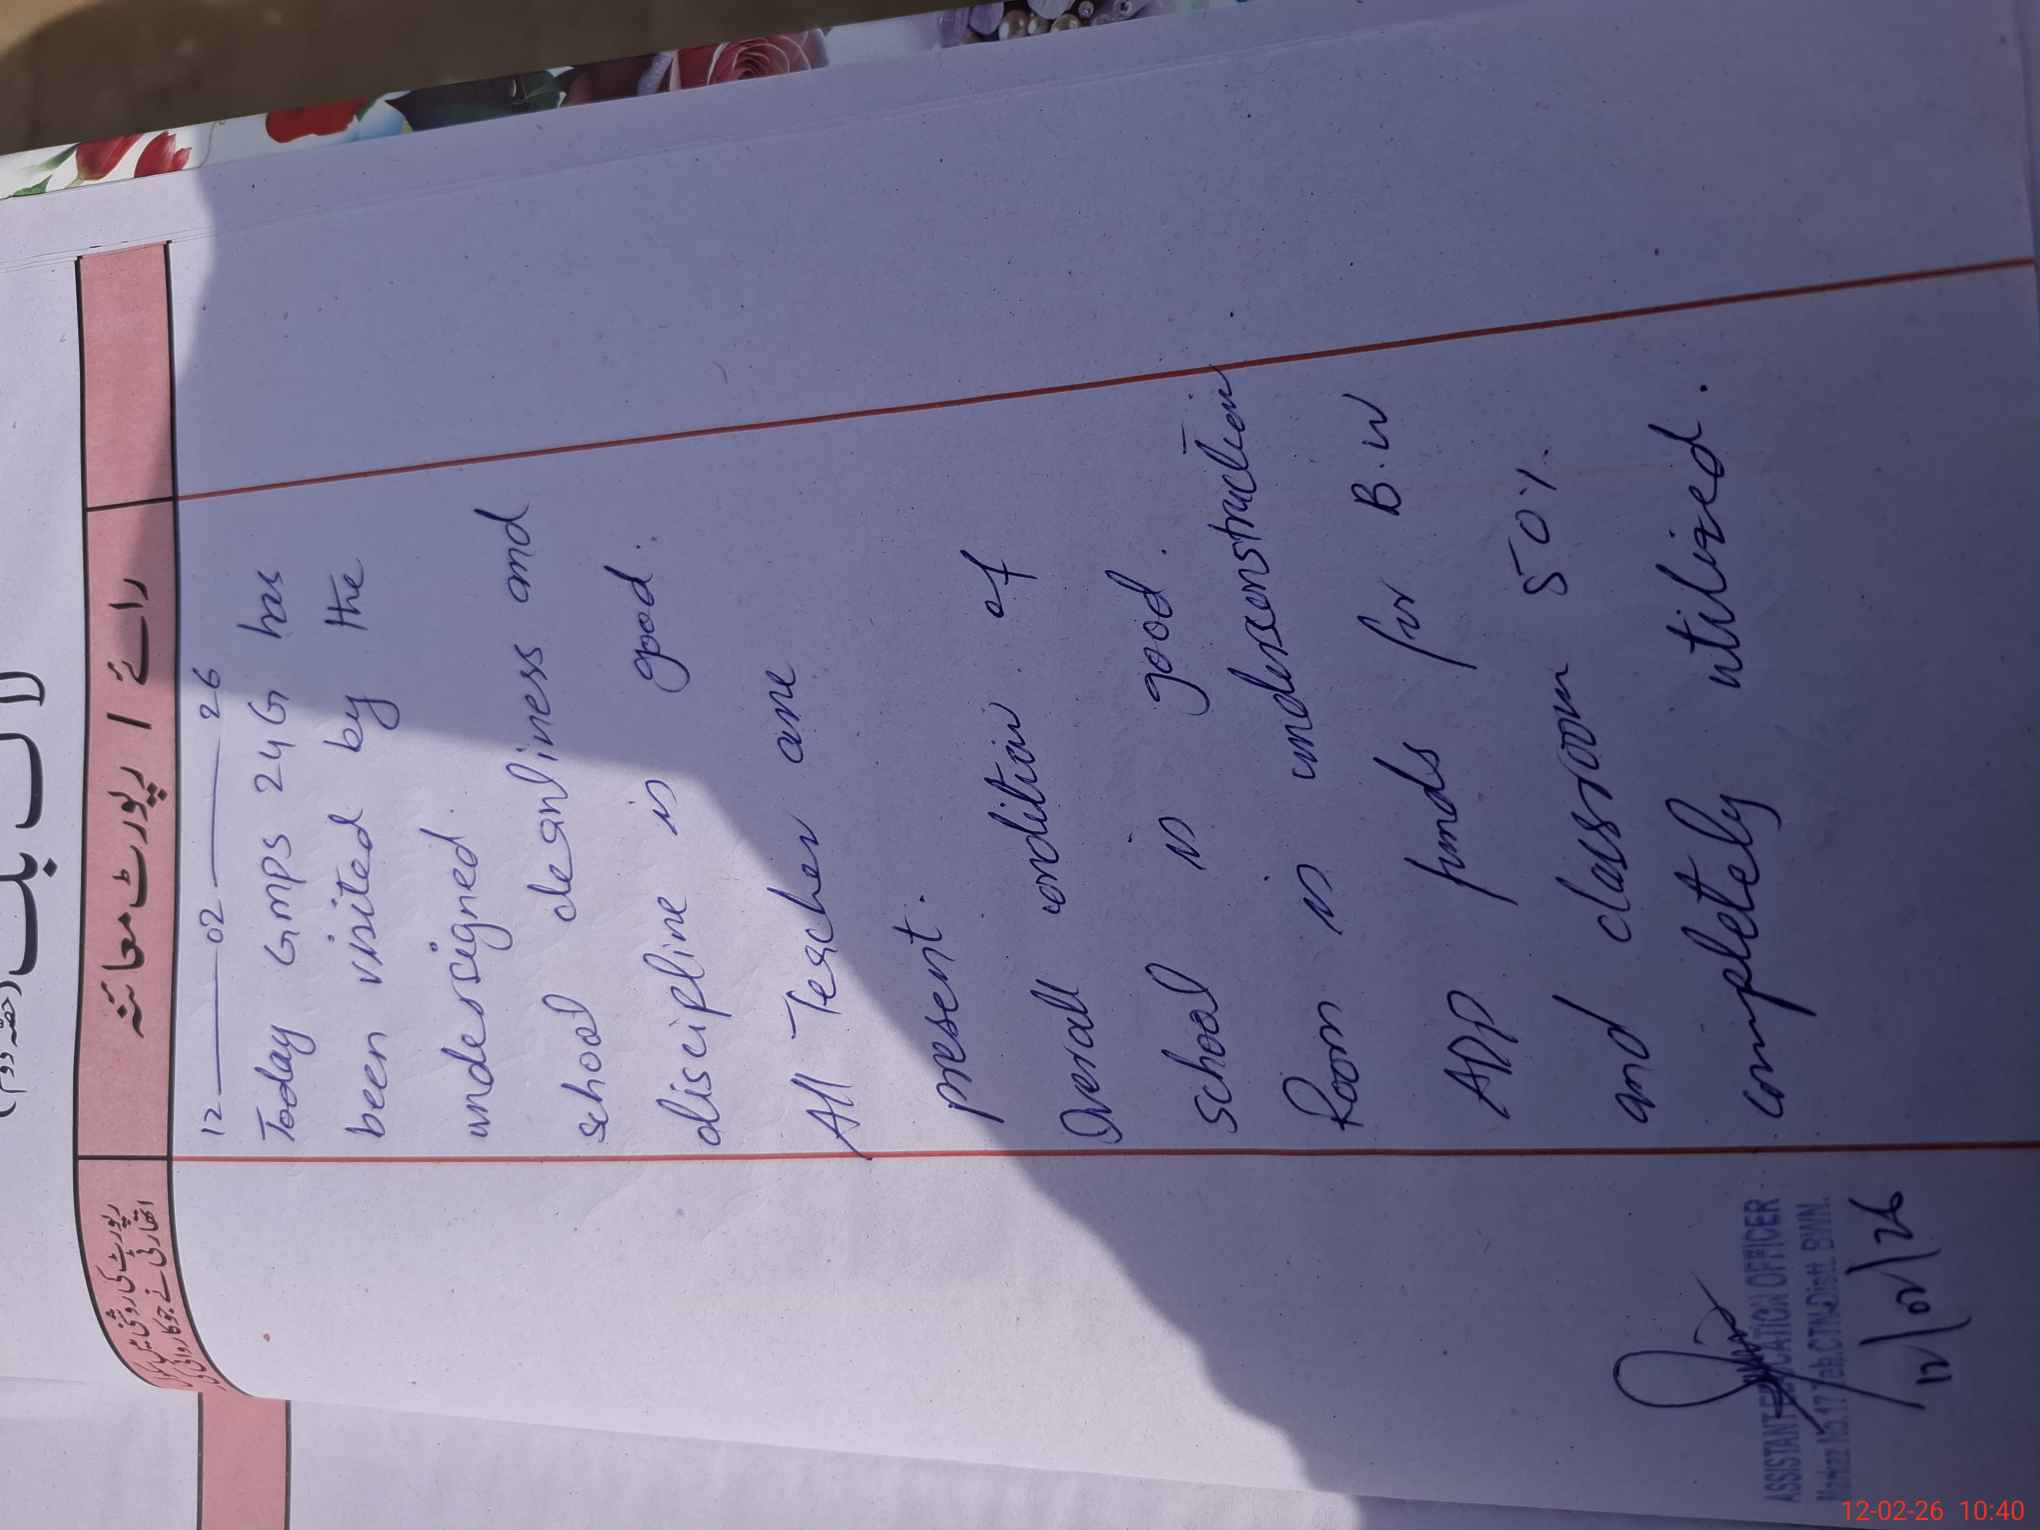 لاگ بک (حصہ دوم)
رائے / رپورٹ معائنہ
رپورٹ کی روشنی میں
اتھارٹی نے جو کاروائی کی
12 — 02 — 26
Today GMPS 24G has
been visited by the
undersigned.
school cleanliness and
discipline is good.
All Teacher are
present.
Overall condition of
school is good.
Room is underconstruction.
ADP funds for B.W
and classroom 50%
completely utilized.
ASSISTANT EDUCATION OFFICER
Markaz No.17 Teh.CTN.Distt. BWN.
12/02/26
12-02-26 10:40